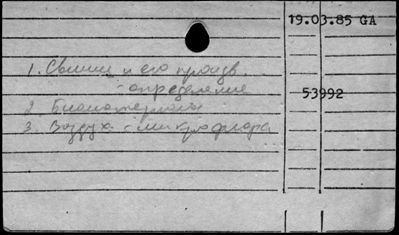 19.03.85 GA
1. Свинец и его произв.
- определение
53992
2. Биоматериалы
3. Воздух - микрофлора